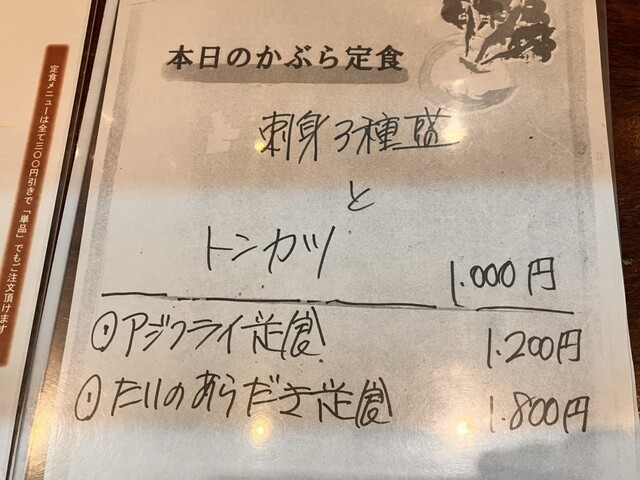 本日のかぶら定食
刺身3種盛
と
トンカツ
1.000円
①アジフライ定食 1.200円
①たいのあらだき定食 1.800円
定食メニューは全て三〇〇円引きで「単品」でもご注文頂けます